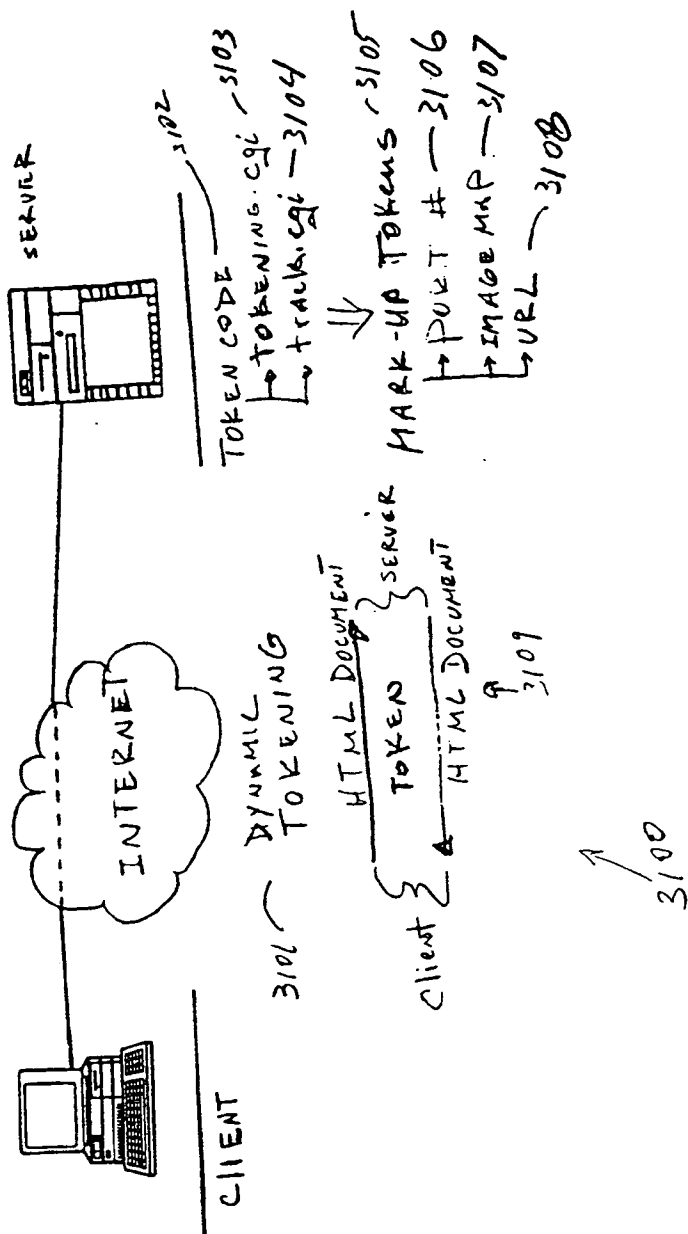 CLIENT
INTERNET
SERVER
3101
DYNAMIC
TOKENING
HTML DOCUMENT
Client
TOKEN
SERVER
HTML DOCUMENT
3109
3100
TOKEN CODE 3102
TOKENING.cgi 3103
track.cgi 3104
MARK-UP TOKENS 3105
PORT # 3106
IMAGE MAP 3107
URL 3108